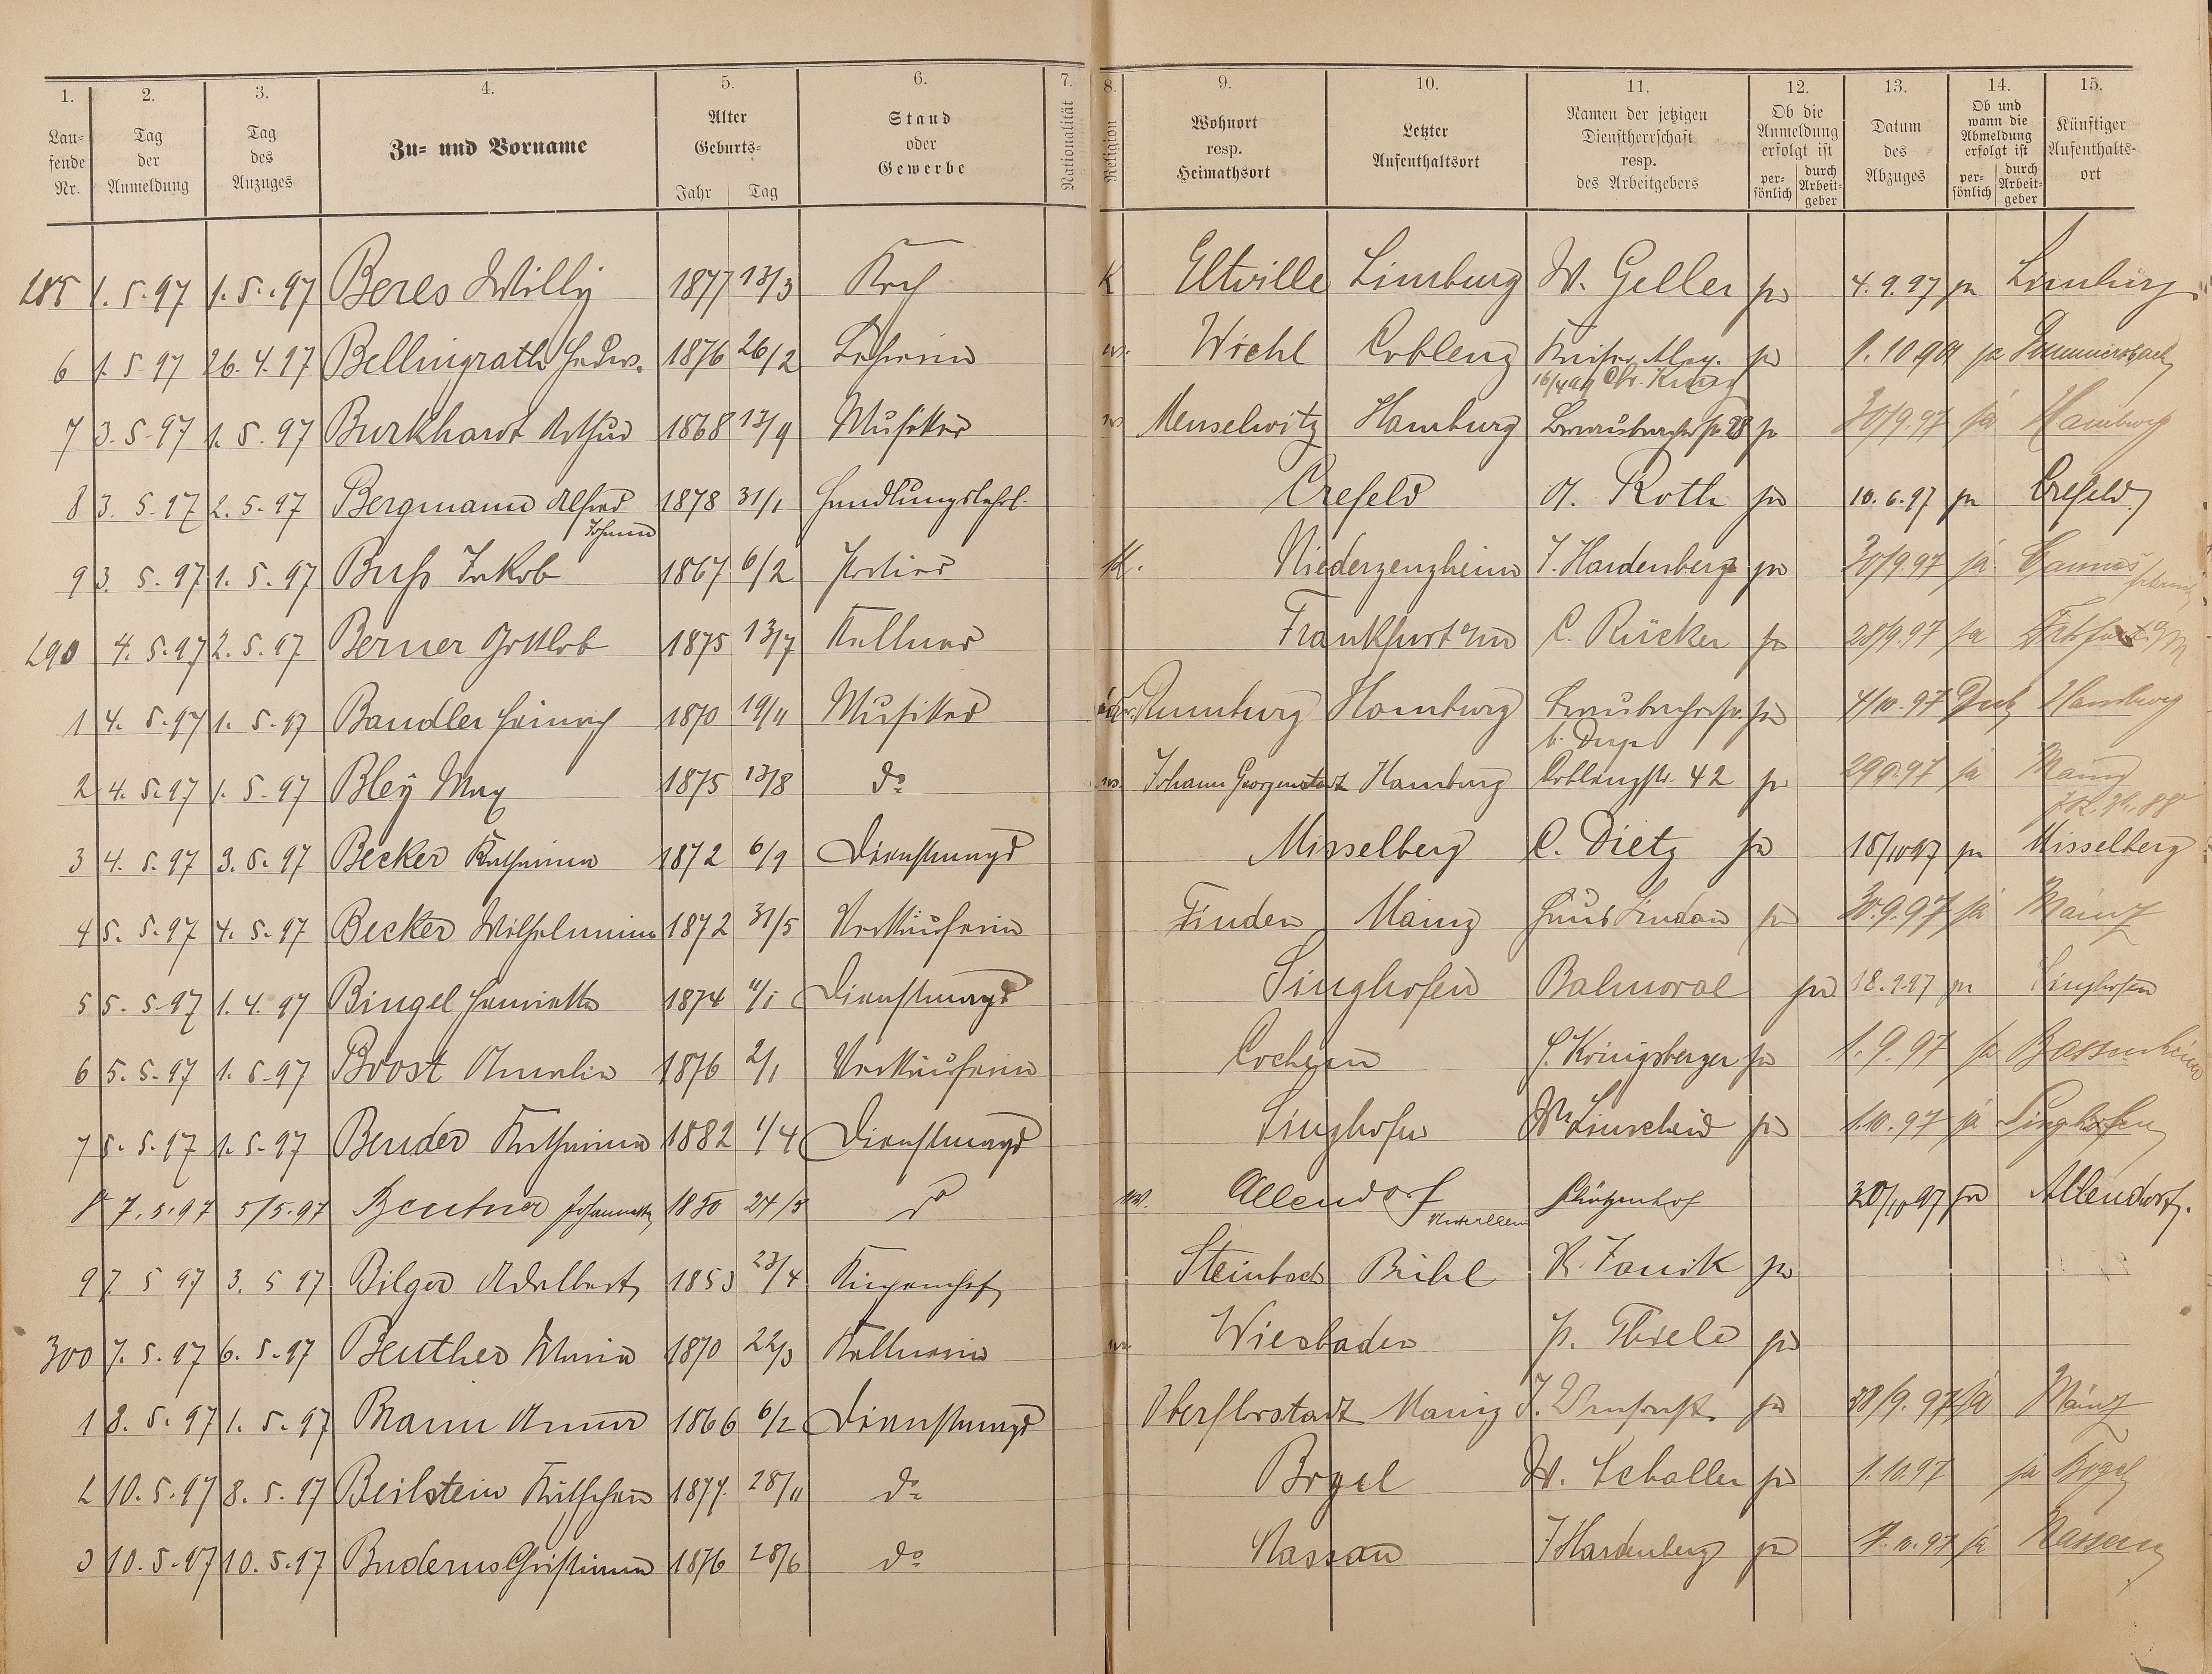 1. 2. 3. 4. 5. 6. 7. 8. 9. 10. 11. 12. 13. 14. 15.
Lau-
fende
Nr.
Tag
der
Anmeldung
Tag
des
Anzuges
Zu- und Vorname
Alter
Geburts-
Jahr Tag
Stand
oder
Gewerbe
Nationalität
Religion
Wohnort
resp.
Heimathsort
Letzter
Aufenthaltsort
Namen der jetzigen
Dienstherrschaft
resp.
des Arbeitgebers
Ob die
Anmeldung
erfolgt ist
per-
sönlich
durch
Arbeit-
geber
Datum
des
Abzuges
Ob und
wann die
Abmeldung
erfolgt ist
per-
sönlich
durch
Arbeit-
geber
Künftiger
Aufenthalts-
ort
285 1.5.97 1.5.97 Beres Willy 1877 13/3 Koch K Eltville Limburg W. Geller ja 4.9.97 ja Limburg
6 1.5 97 26.4.97 Bellingrath Hedw. 1876 26/2 Lehrerin Wiehl Coblenz ja 1.10.901 ja Gummersbach
16/4 99 Chr. Kunz
7 3.5.97 1.5.97 Burkhard Arthur 1868 13/9 Musiker Meuselwitz Hamburg 28 ja 30/9.97 ja Hamburg
8 3.5.97 2.5.97 Bergmann Alfred 1878 31/1 Handlungslehrl. Crefeld A. Roth ja 10.6.97 ja Crefeld
Johann
9 3.5.97 1.5.97 Buss Jakob 1867 6/2 Portier K. Niederzeuzheim J. Hardenberg ja 30/9.97 ja Cannes
290 4.5.97 2.5.97 Berner Gottlob 1875 13/7 Kellner Frankfurt a/m C. Rücker ja 28/9.97 ja Frkfurt a/M
1 4.5.97 1.5.97 Bandler Heinrich 1870 19/11 Musiker Rumburg Hamburg ja 4/10.97 Hamburg
2 4.5.97 1.5.97 Bley Max 1875 13/8 do Johann Georgenstadt Hamburg Coblenzstr. 42 ja 29.9.97 ja Mainz
3 4.5.97 3.5.97 Becker Katharina 1872 6/9 Dienstmagd Misselberg C. Dietz ja 15/10 97 ja Misselberg
4 5.5.97 4.5.97 Becker Wilhelmine 1872 31/5 Verkäuferin Finden Mainz Haus Lindau ja 30.9.97 ja Mainz
5 5.5.97 1.4.97 Bingel Henriette 1874 11/1 Dienstmagd Singhofen Balmoral ja 18.9.97 ja Singhofen
6 5.5.97 1.5.97 Boost Amalie 1876 2/1 Verkäuferin Cochem S. Königsberger ja 1.9.97 ja Bassenheim
7 5.5.97 1.5.97 Bender Katharina 1882 1/4 Dienstmagd Singhofen Linscheid ja 1.10.97 ja Singhofen
8 7.5.97 5/5.97 Johannette 1850 24/5 do Allendorf Schützenhof 30/10 97 ja Allendorf.
9 7 5 97 3.5 97 Bilger Adalbert 1853 23/4 Steinbach Bühl K. Janik ja
300 7.5.97 6.5.97 Beuther Maria 1870 22/3 Kellnerin Wiesbaden P. Thiele ja
1 8.5.97 1.5.97 Braun Anna 1866 6/2 Dienstmagd Oberflorstadt Mainz ja 28/9.97 ja Mainz
2 10.5.97 8.5.97 Beilstein Käthchen 1877 28/11 do Bogel W. Schaller ja 1.10.97 ja Bogel
3 10.5.97 10.5.97 Buderus Christiane 1876 28/6 do Nassau J Hardenberg ja 1.10.97 ja Nassau